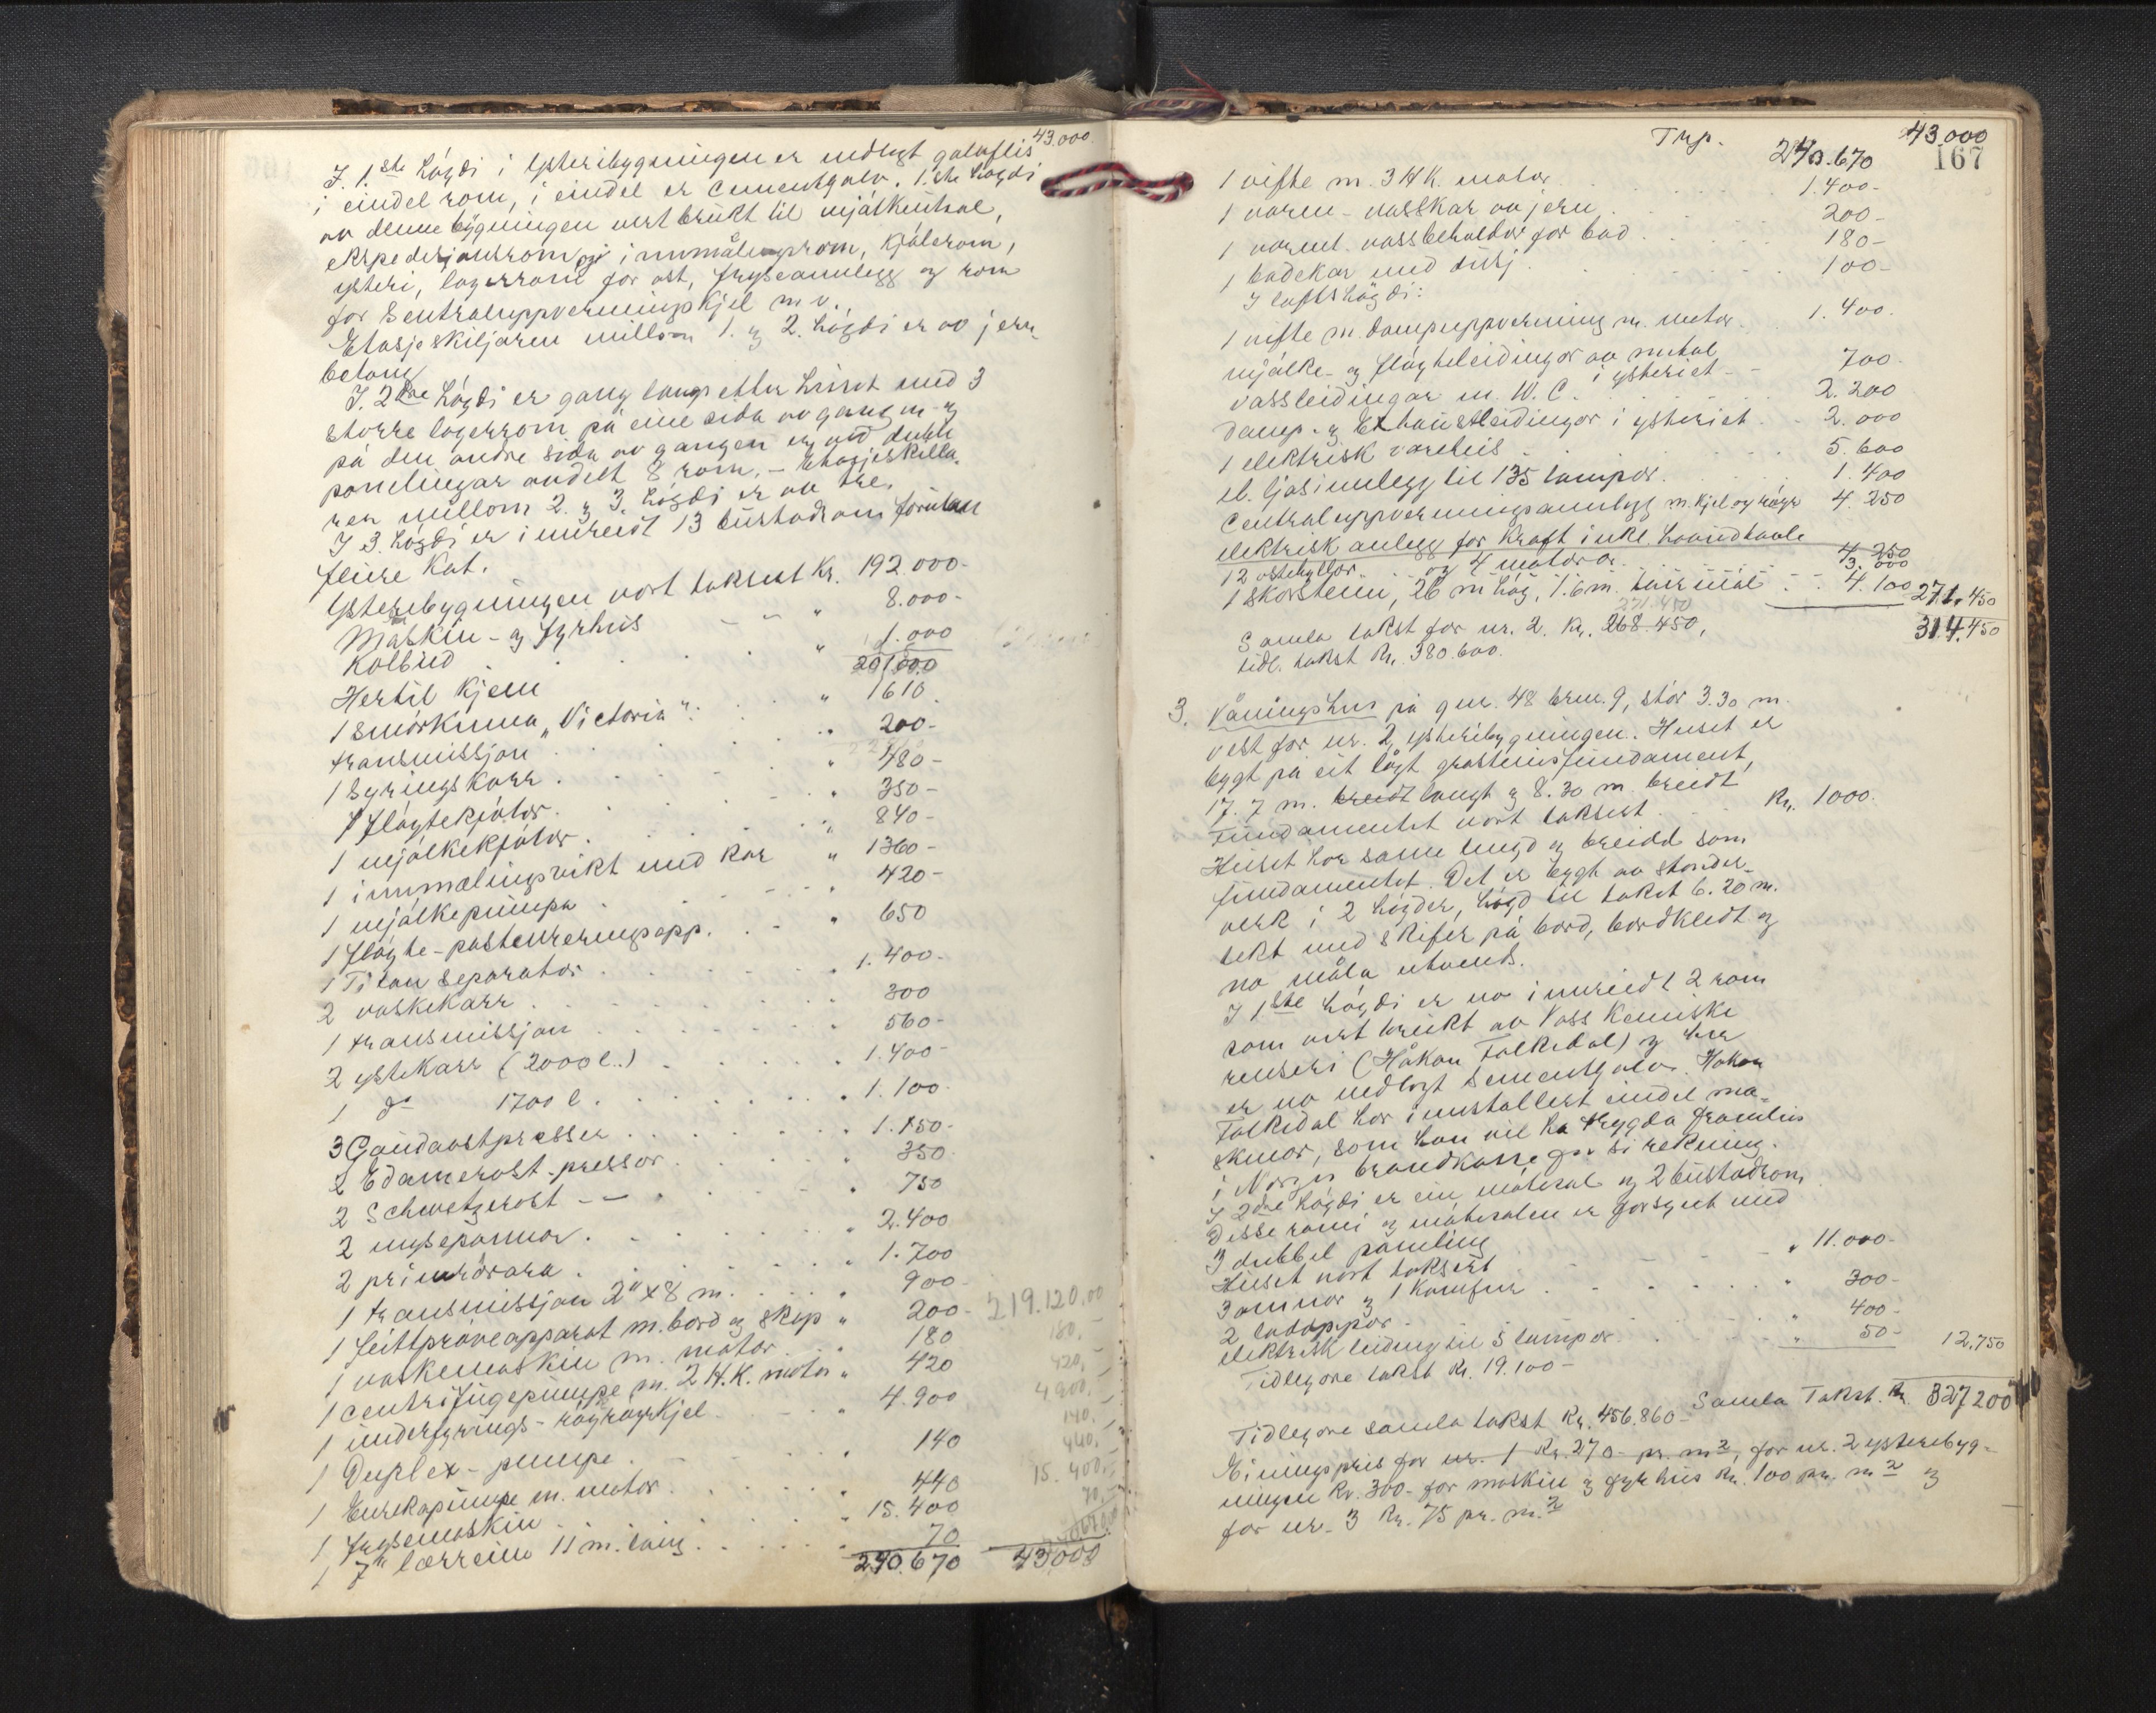 43.000
I. 1.ste høgdi i ysteribygningen er nedlagt golvflis
i eindel rom, i eindel er cementgolv. 1.ste høgdi
av denne bygningen vert brukt til mjølkeutsal,
ekspedisjonsrom og innmålingsrom, kjølerom,
ysteri, lagerrom for ost, fryseanlegg og rom
for sentraluppvermingskjel m.v.
Etasjeskiljaren millom 1. og 2. høgdi er av jern-
betong
I. 2dre høgdi er gang langs etter huset med 3
større lagerrom på eine sida av gangen og
på den andre sida av gangen er med dubbla
panelingar avdelt 8 rom. - Etasjeskilla-
ren millom 2. og 3. høgdi er av tre.
I 3. høgdi er innreidt 13 bustadrom forutan
fleire kot.
Ysteribygningen vart taksert kr. 192.000-
Maskin- og fyrhus - - " 8.000-
Kolbud . . . . " 1.000
201000
Hertil kjem
1 smørkinna "Victoria". . . " 1610
transmissjon . . . . " 200-
1 syringskarr . . . . " 480-
1 fløytekjølar . . . . " 350-
1 mjølkekjølar . . . . " 840-
1 innmælingsvikt med kar " 1360-
1 mjølkepumpa . . . . " 420-
1 fløyte-pasteureringsapp. . - " 650
1 Titan separator . . . . " 1.400-
2 vaskekarr . . . . 300
1 transmissjon . . . . 560-
2 ystekarr (2000 l.) . . . . 1.400-
1 do 1700 l . . . . 1.100
3 Goudaostpresser . . . . 1.150-
2 Edamerost-pressor . . . . 350
2 Schweizerost - - . . . . 750
2 myseponnor . . . . 2.400
2 primrørara . . . . 1.700
1 transmissjon 2" x 8 m. . . . 900-
1 feittprøveapparat m. bord og skap " 200- 219.120,00
1 vaskemaskin m. motor . . . 180 180,-
1 centrifugepumpe m. 2 H.K. motor " 420 420,-
1 underfyrings-røyrøyrkjel . . - " 4.900 4900,-
1 Duplex-pumpe . . . . 140 140,-
1 Eurekapumpe m. motor . . . . 440 440,-
1 frysemaskin . . . . 15.400 15.400,-
1 7" lærreim 11 m. lang . . . . 70 70,-
240.670 43000
Trp. 240.670 43.000
167
1 vifte m. 3 H.K. motor . . . . 1.400-
1 varm-vasskar av jern . . . . 200-
1 varmt. vassbehaldar for bad . . . . 180-
1 badekar med dusj . . . . 100-
I loftshøgdi:
1 vifte m. dampuppverming m. motor . 1.400.
mjølke- og fløyteleidingar av metal i ysteriet - - 700-
vassleidingar m. W.C. . . . 2.200
damp- og Exhaustleidingar i ysteriet . . 2.000
1 elektrisk vareheis . . . . 5.600
el. ljosinnlegg til 135 lampor . . . . 1.400
Centraluppvermingsannlegg m. kjel og røyr 4.250
elektrisk anlegg for kraft inkl. hovudtavle
og 4 motorar . . . . 4.250
12 ostehyllor . . 3.000
1 skorstein, 26 m høg, 1.6 m. tvermål . . 4.100 271.450
271.450
Samla takst for nr. 2. Kr. 268.450, 314.450
tidl. takst Kr. 380.600.
3. Våningshus på gnr. 48 brnr. 9, stór 3.30 m.
vest for nr. 2, ysteribygningen. Huset er
bygt på eit lågt gråsteinsfundament,
17.7 m. breidt langt og 8.30 m. breidt
Fundamentet vart taksert . . Kr. 1000.
Huset har same lengd og breidd som
fundamentet. Det er bygt av stender-
verk i 2 høgder, høgd til taket 6.20 m.
tekt med skifer på bord, bordkledt og
no måla utvends.
I 1ste høgdi er no innreidt 2 rom
som vert brukt av Voss Kemiske
renseri (Håkon Folkedal) og her
er no nedlagt sementgolv. Håkon
Folkedal har innstallert eindel ma-
skinor, som han vil ha trygda framleis
i Norges brandkasse for si rekning.
I 2dre høgdi er ein matsal og 2 bustadrom
Disse romi og matsalen er forsynt med
3 dubbel paneling
Huset vart taksert - - - - " 11.000-
3 omnar og 1 komfur . . . . " 300-
2 ladøppor . . . . " 400-
elektrisk leiding til 5 lampor . . . . " 50- 12.750
Tidlegare takst Kr. 19.100-
Samla Takst. Kr. 327200
Tidlegare samla takst Kr. 456.860-
Einingspris for nr. 1 Kr. 270- pr. m2, for nr. 2 ysteribyg-
ningen Kr. 300- for maskin og fyrhus Kr. 100 pr. m2 og
for nr. 3 Kr. 75 pr. m.2